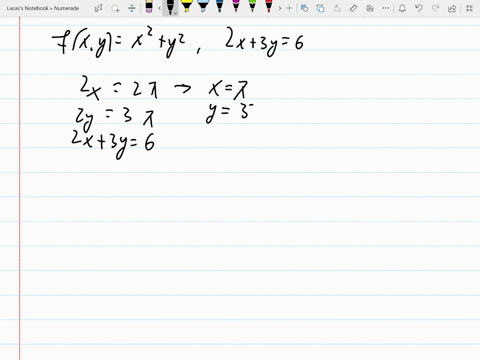 Lucas's Notebook » Numerade
f(x,y) = x² + y², 2x+3y=6
2x = 2λ → x=λ
2y = 3 λ y = 3
2x+3y=6